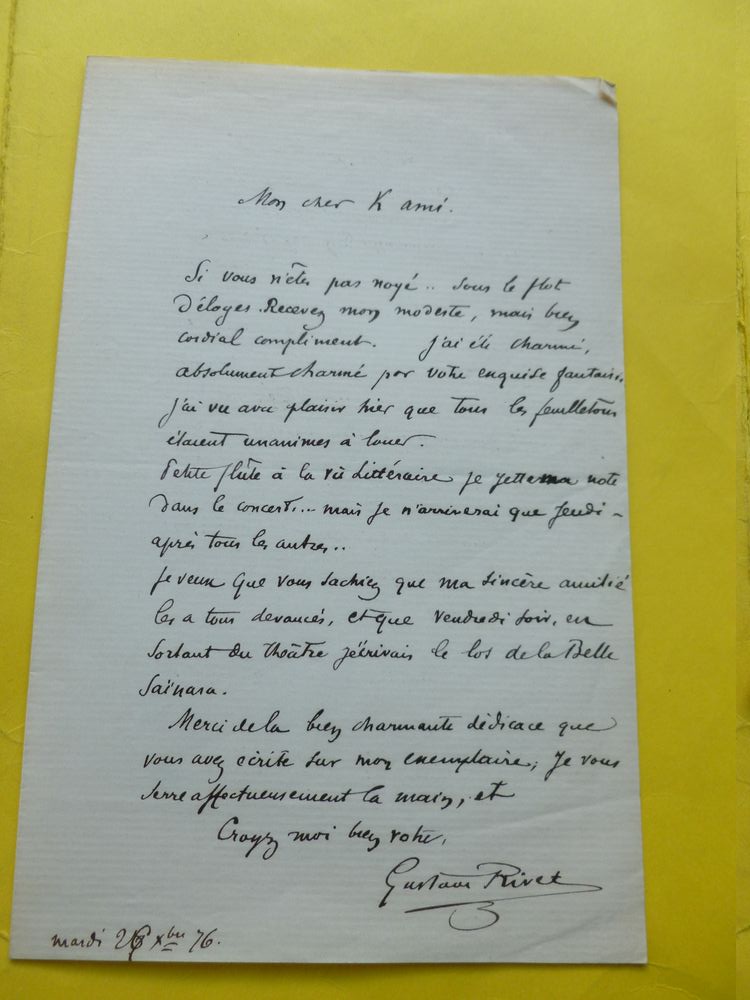 Mon cher K ami.
Si vous n'êtes pas noyé .. sous le flot
d'éloges. Recevez mon modeste, mais bien
cordial compliment. J'ai été charmé,
absolument charmé par votre exquise fantaisie.
J'ai vu avec plaisir hier que tous les feuilletons
étaient unanimes à louer.
Petite flûte à la vie Littéraire je jette ma note
dans le concert... mais je n'arriverai que Jeudi -
après tous les autres ..
Je veux que vous sachiez que ma sincère amitié
les a tous devancés, et que vendredi soir, en
sortant du théâtre j'écrivais le los de la Belle
Saïnara.
Merci de la bien charmante dédicace que
vous avez écrite sur mon exemplaire; Je vous
serre affectueusement la main, et
Croyez moi bien votre,
Gustave Rivet
mardi 26 Xbre 76.